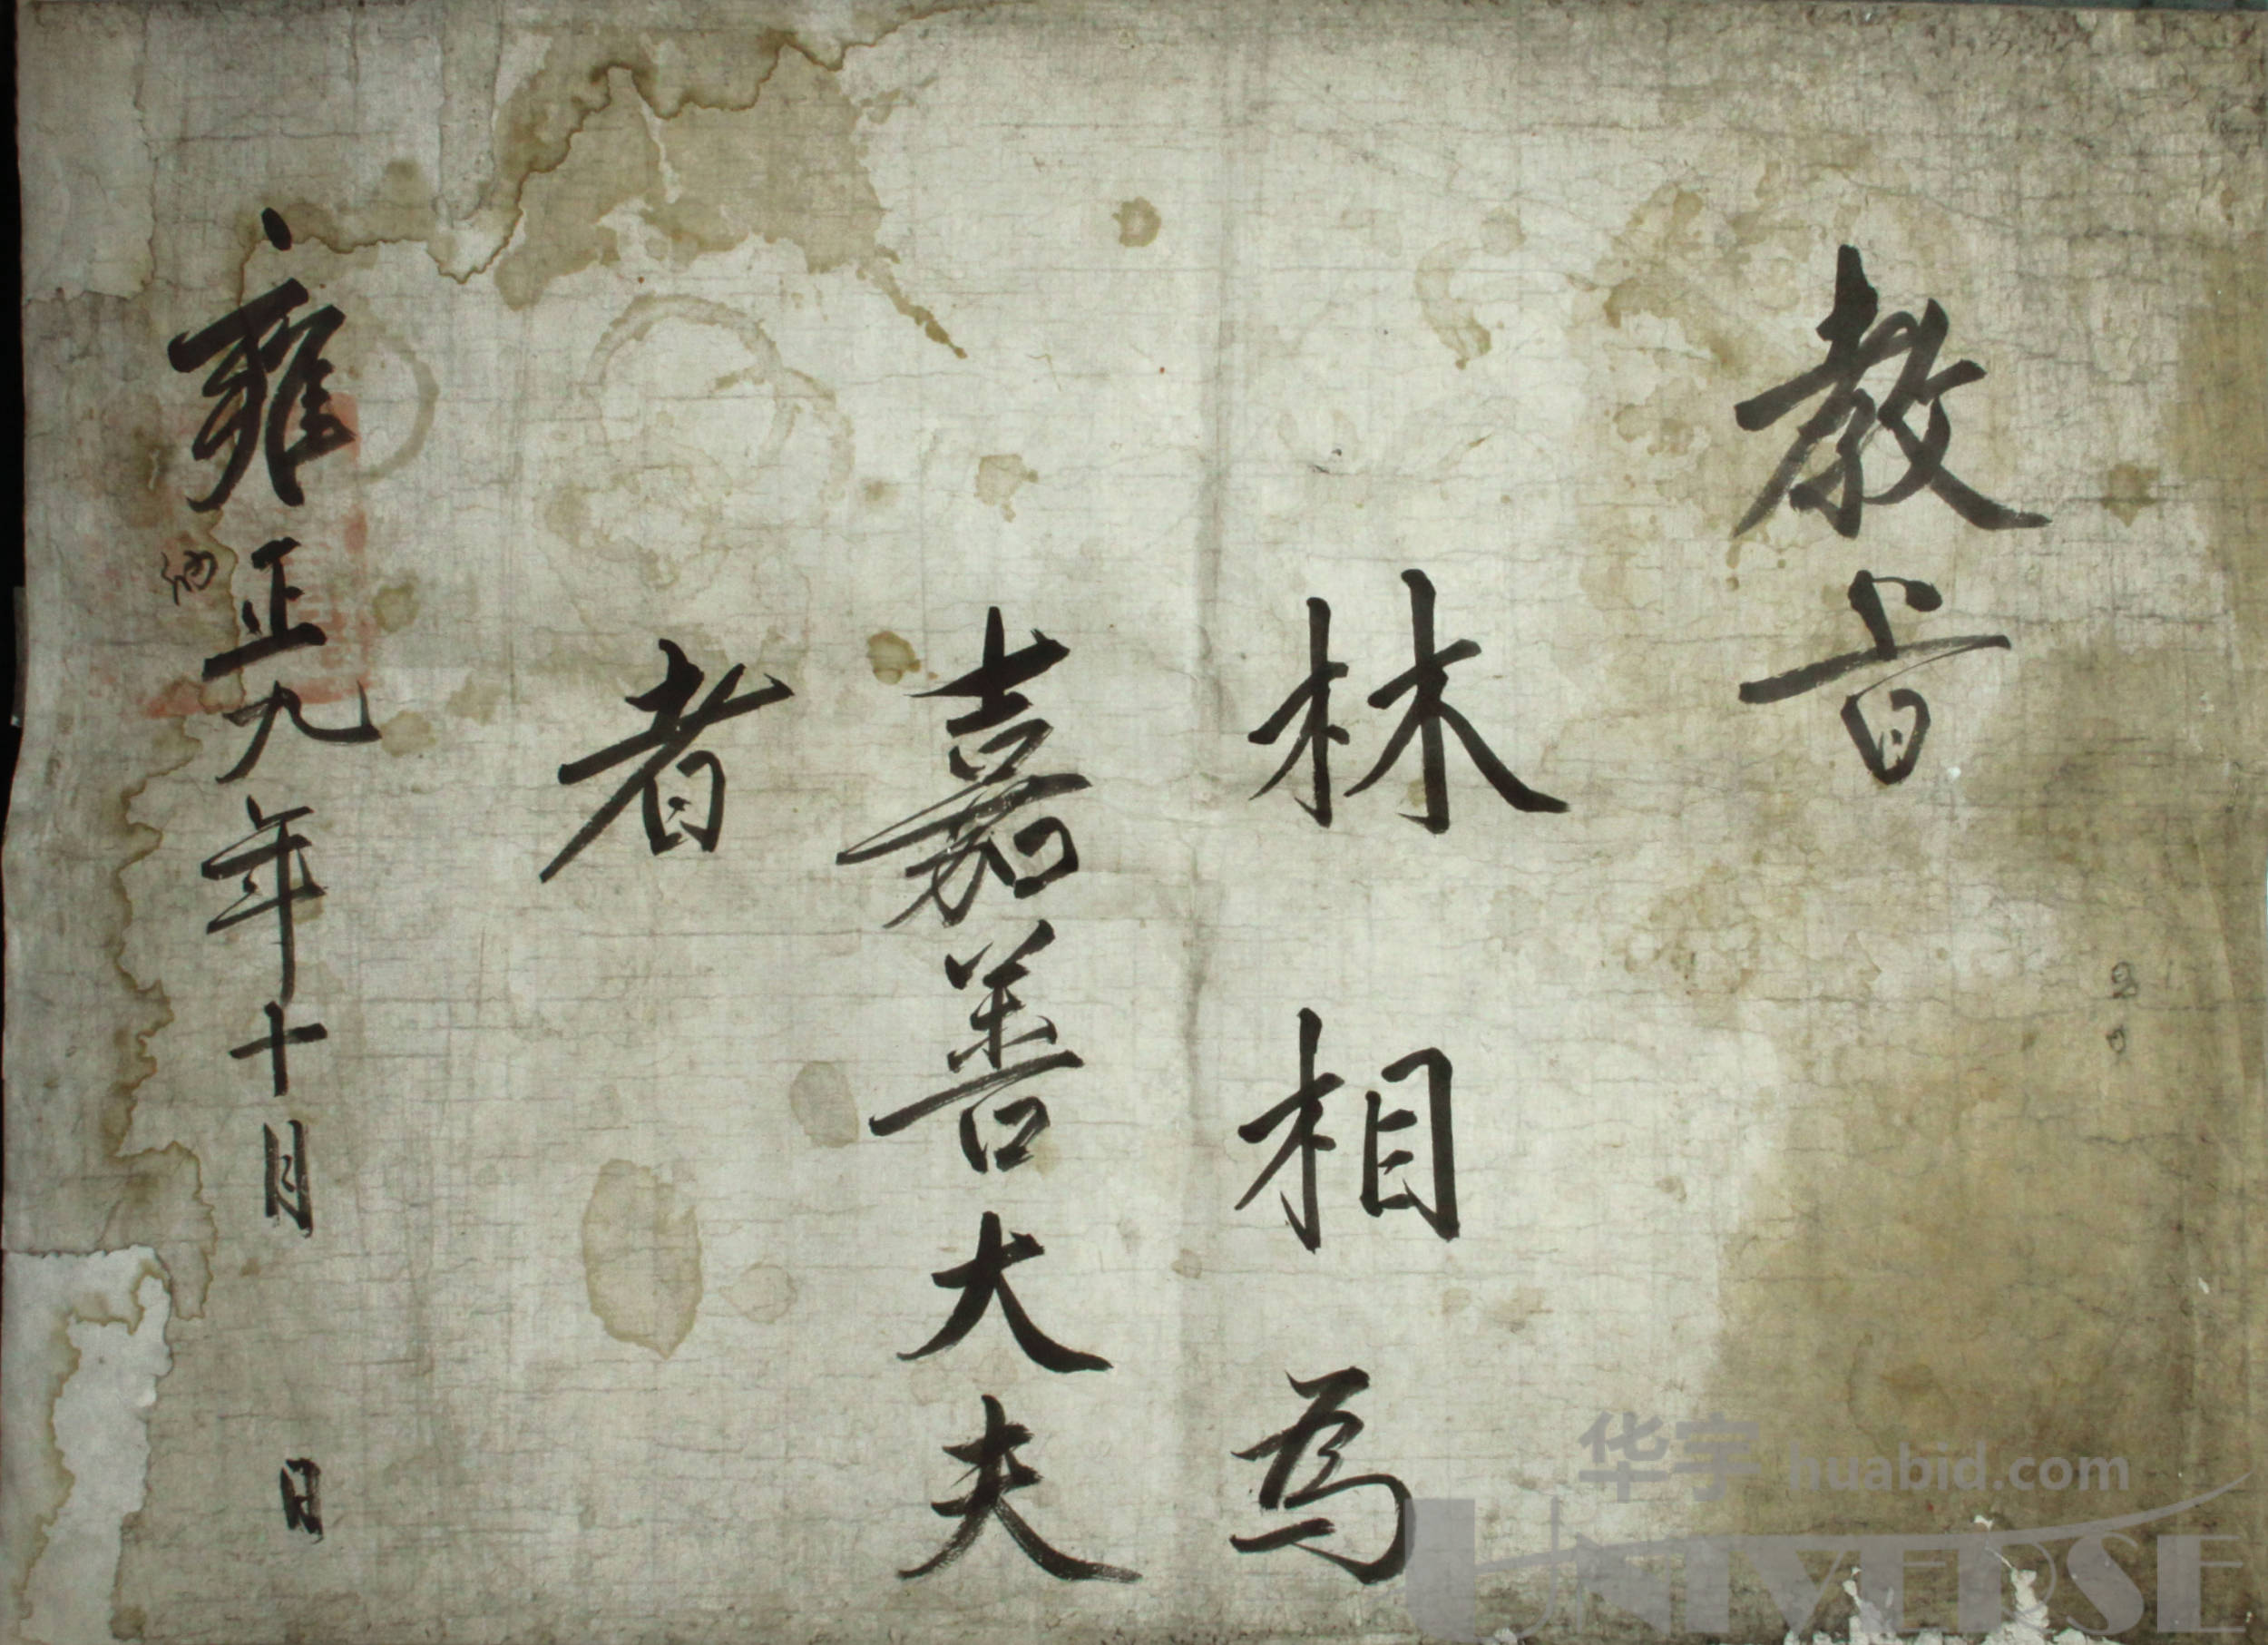 教旨
林相為
嘉善大夫
者
雍正九年十月 日
华宇 huabid.com
UNIVERSE